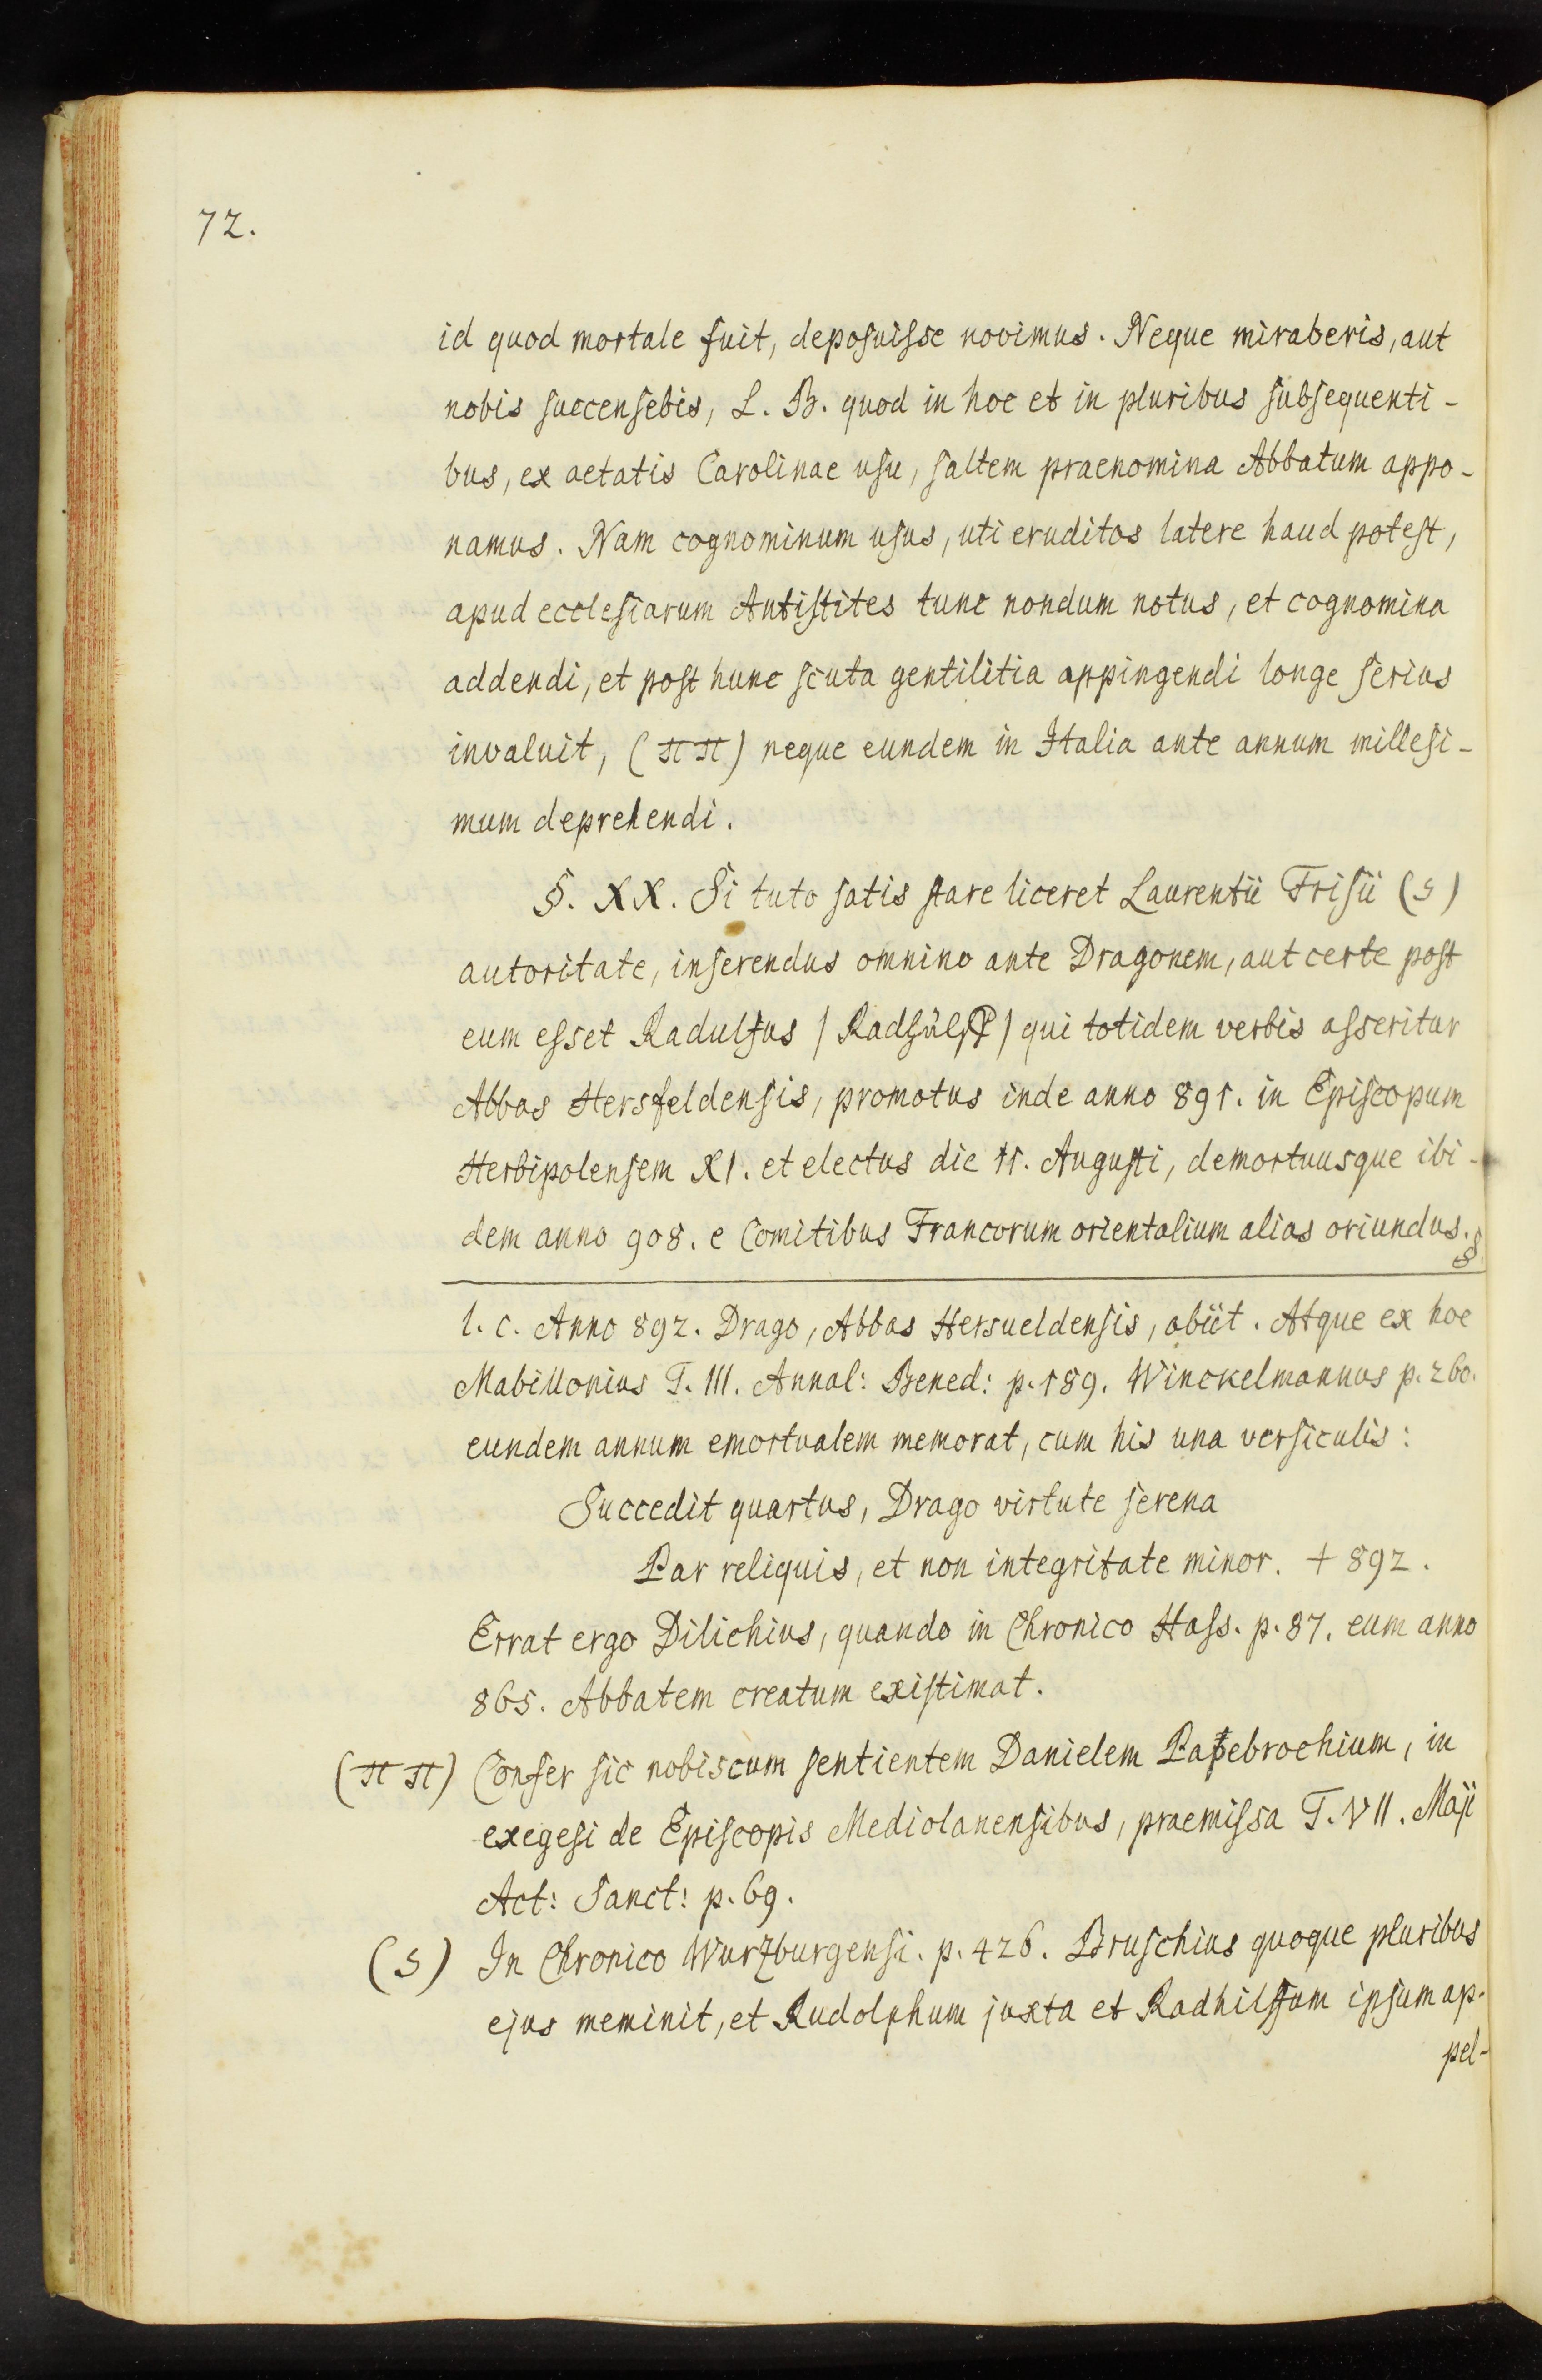 72.
id quod mortale fuit, deposuisse novimus. Neque miraberis, aut
nobis succensebis, L. B. quod in hoc et in pluribus subsequenti-
bus, ex aetatis Carolinae usu, saltem praenomina Abbatum appo-
namus. Nam cognominum usus, uti eruditos latere haud potest,
apud ecclesiarum Antistites tunc nondum notus, et cognomina
addendi, et post hunc scuta gentilitia appingendi longe serius
invaluit, (ππ) neque eundem in Italia ante annum millesi-
mum deprehendi.
§. XX. Si tuto satis stare liceret Laurentii Frisii (ς)
autoritate, inserendus omnino ante Dragonem, aut certe post
eum esset Radulfus / / qui totidem verbis asseritur
Abbas Hersfeldensis, promotus inde anno 891. in Episcopum
Herbipolensem XI. et electus die 11. Augusti, demortuusque ibi-
dem anno 908. e Comitibus Francorum orientalium alias oriundus.
§.
l. c. Anno 892. Drago, Abbas Hersueldensis, obiit. Atque ex hoc
Mabillonius T. III. Annal: Bened: p. 189. Winckelmannus p. 260.
eundem annum emortualem memorat, cum his una versiculis:
Succedit quartus, Drago virtute serena
Par reliquis, et non integritate minor. + 892.
Errat ergo Dilichius, quando in Chronico Hass. p. 87. eum anno
865. Abbatem creatum existimat.
(ππ) Confer sic nobiscum sentientem Danielem Papebrochium, in
exegesi de Episcopis Mediolanensibus, praemissa T. VII. Maji
Act: Sanct: p. 69.
(ς) In Chronico Wurzburgensi. p. 426. Bruschius quoque pluribus
ejus meminit, et Rudolphum juxta et Radhilfum ipsum ap-
pel-